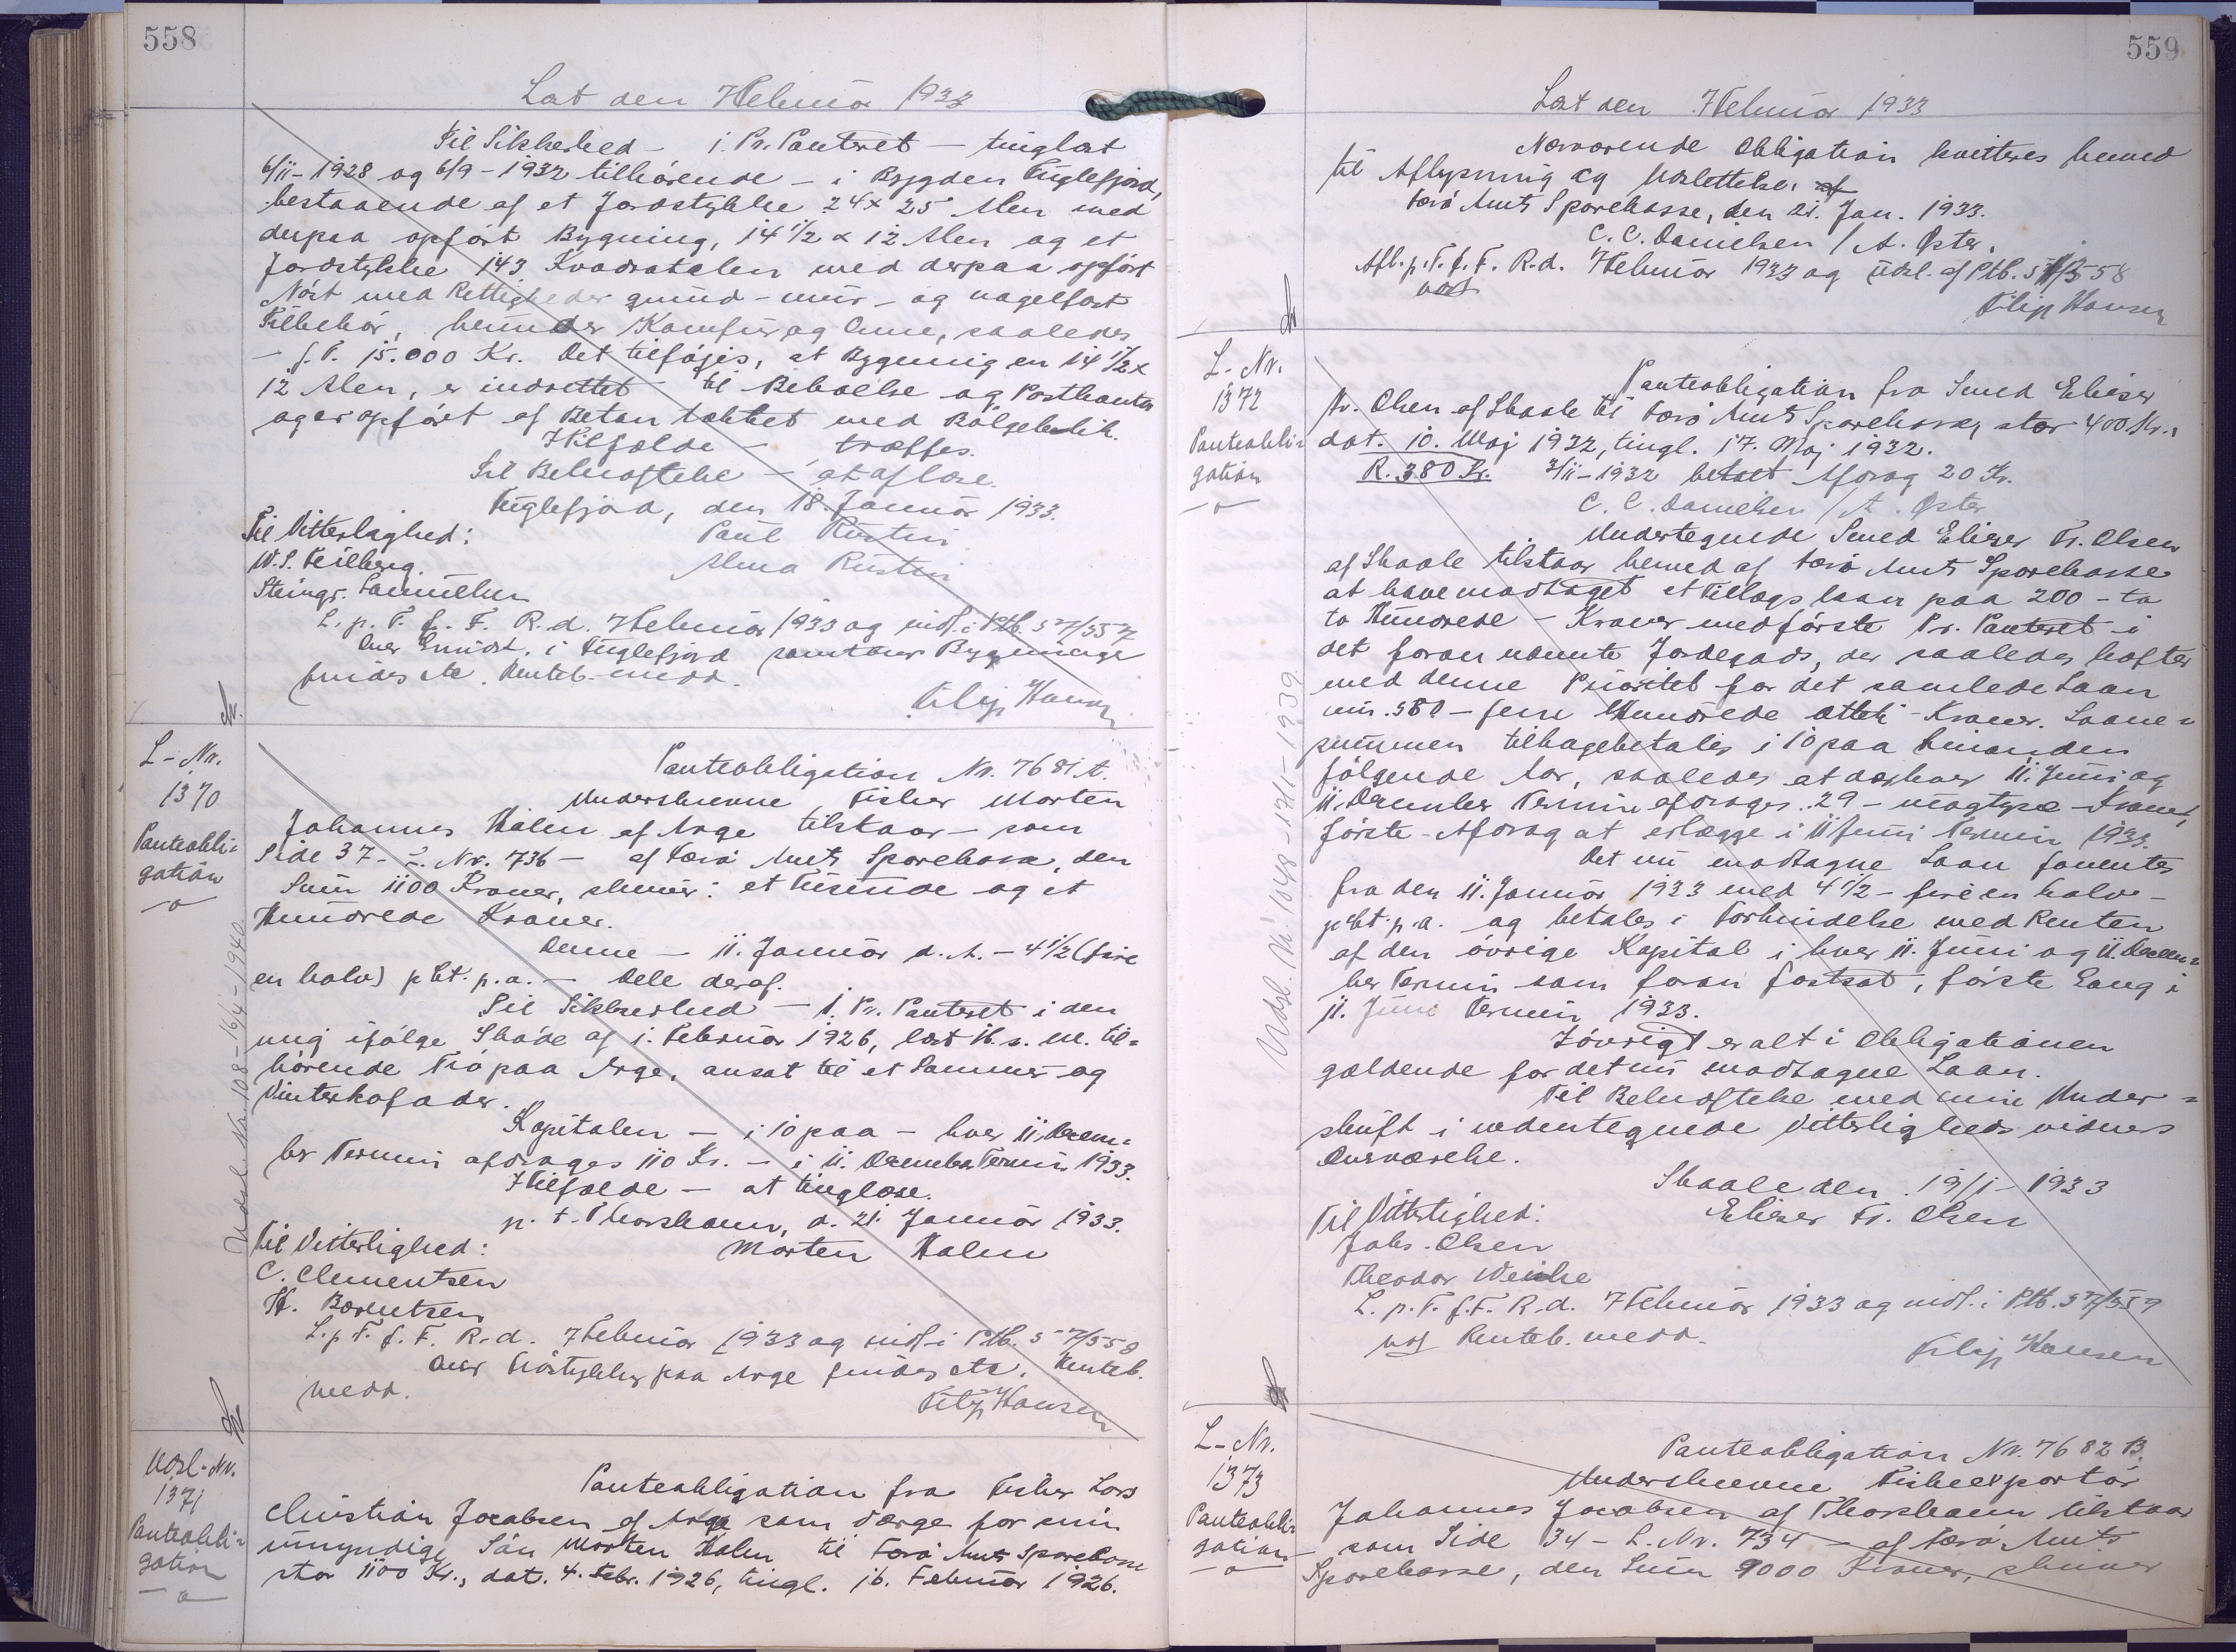 558
Læst den 7 Februar 1933
Til Sikkerhed - 1. Pr. Panteret - tinglæst
6/11-1928 og 6/9-1932 tilhørende - i Bygden Fuglefjord,
bestaaende af et Jordstykke 24 x 25 Alen med
derpaa opført Bygning, 14 1/2 x 12 Alen og et
Jordstykke 143 Kvadratalen med derpaa opført
Nóst med Rettigheder grund- mur- og nagelfast
Tilbehør, herunder Komfur og Ovne, saaledes
- f. T. 15.000 Kr. Det tilføjes, at Bygningen 14 1/2 x
12 Alen, er indrettet til Beboelse og Postkontor
og er opført af Beton tækket med Bølgeblik.
I Tilfælde - træffes.
Til Bekræftelse - at aflæse.
Fuglefjord, den 18. Januar 1933.
Til Vitterlighed: Paul Rustin
W. S. Heilberg. Alma Rustin
Steingr. Samuelsen
L. p. T. f. F. R. d. 7 Februar 1933 og indf. i Ptb. 57/557
Over Grundst. i Fuglefjord samt over Bygninger
findes etc. Renteb. medd.
Filip Hansen
L-Nr.
1370
Panteobli=
gation
-o-
Panteobligation Nr. 7681 A.
Underskrevne Fisker Morten
Johannes Holm af Arge tilstaar - som
Side 37 - L. Nr. 736 - af Færø Amts Sparekasse, den
Sum 1100 Kroner, skriver: et Tusinde og et
Hundrede Kroner.
Denne - 11. Januar d. A. - 4 1/2 (fire
en halv) pCt. p.a. - Dele deraf.
Til Sikkerhed - 1. Pr. Panteret i den
mig ifølge Skøde af 1. Februar 1926, læst 16. s. M. til=
hørende Trø paa Arge, ansat til et Sommer og
Vinterkofoder.
Kapitalen - i 10 paa - hver 11. Decem=
ber Termin afdrages 110 Kr. - i 11. December Termin 1933.
I Tilfælde - at tinglæse.
p. t. Thorshavn, d. 21. Januar 1933.
Til Vitterlighed: Morten Holm
C. Clementsen
H. Berentsen
L. p. T. f. F. R. d. 7 Februar 1933 og indf. i Ptb. 57/558
Over Trøstykker paa Arge findes etc. Renteb.
medd.
Filip Hansen
Udsl. Nr. 108 - 16/4 - 1940
Udsl-Nr.
1371
Panteobli=
gation
-o-
Panteobligation fra Fisker Lars
Christian Jacobsen af Arge som Værge for min
umyndige Søn Morten Holm til Færø Amts Sparekasse
stor 1100 Kr., dat. 4. Febr. 1926, tingl. 16. Februar 1926.
559
Læst den 7 Februar 1933
Nærværende Obligation kvitteres herved
til Aflysning og Udslettelse. af
Færø Amts Sparekasse, den 21. Jan. 1933.
C. C. Danielsen / A. Øster.
Afl. p. T. f. F. R. d. 7 Februar 1933 og Udsl. af Ptb. 57/558
Filip Hansen
L-Nr.
1372
Panteobli=
gation
-o-
Panteobligation fra Smed Elieser
Fr. Olsen af Skaale til Færø Amts Sparekasse, stor 400 Kr.,
dat. 10. Maj 1932, tingl. 17. Maj 1932.
R. 380 Kr. 3/11-1932 betalt Afdrag 20 Kr.
C. C. Danielsen / A. Øster
Undertegnede Smed Elieser Fr. Olsen
af Skaale tilstaar herved af Færø Amts Sparekasse
at have modtaget et Tillægslaan paa 200 - to
to Hundrede - Kroner med første Pr. Panteret i
det foran nævnte Jordegods, der saaledes hæfter
med denne Prioritet for det samlede Laan
nu. 580 - fem Hundrede otteti - Kroner. Laane=
summen tilbagebetales i 10 paa hinanden
følgende Aar, saaledes at der hver 11. Juni og
11. December Termin afdrages 29 - niogtyve - Kroner,
første Afdrag at erlægge i 11 Juni Termin 1933.
Det nu modtagne Laan forrentes
fra den 11. Januar 1933 med 4 1/2 - fire en halv -
pCt. p.a. og betales i Forbindelse med Renten
af den øvrige Kapital i hver 11. Juni og 11. Decem=
ber Termin som foran fastsat, første Gang i
11. Juni Termin 1933.
Iøvrigt er alt i Obligationen
gældende for det nu modtagne Laan.
Til Bekræftelse med min Under=
skrift i undertegnede Vitterlighedsvidners
Overværelse.
Skaale den 19/1-1933
Til Vitterlighed: Elieser Fr. Olsen
Johs. Olsen
Theodor Weihe
L. p. T. f. F. R. d. 7 Februar 1933 og indf. i Ptb. 57/559
Renteb. medd.
Filip Hansen
L-Nr.
1373
Panteobli=
gation
-o-
Panteobligation Nr. 7682 B.
Underskrevne Fiskeexportør
Johannes Jacobsen af Thorshavn tilstaar
som Side 34 - L. Nr. 734 - af Færø Amts
Sparekasse, den Sum 9000 Kroner, skriver